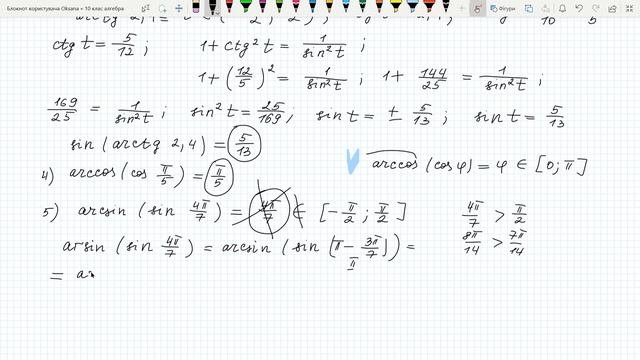 Блокнот користувача Oksana » 10 клас алгебра
ctg t = 5/12 ; 1 + ctg² t = 1/sin² t ;
1 + (12/5)² = 1/sin² t ; 1 + 144/25 = 1/sin² t ;
169/25 = 1/sin² t ; sin² t = 25/169 ; sin t = ± 5/13 ; sin t = 5/13
sin (arctg 2,4) = 5/13
arccos (cos φ) = φ ∈ [0; π]
4) arccos (cos π/5) = π/5
5) arcsin (sin 4π/7) = 4π/7 ∉ [-π/2 ; π/2] 4π/7 > π/2
arsin (sin 4π/7) = arcsin (sin (π - 3π/7)) = 8π/14 > 7π/14
II
= a